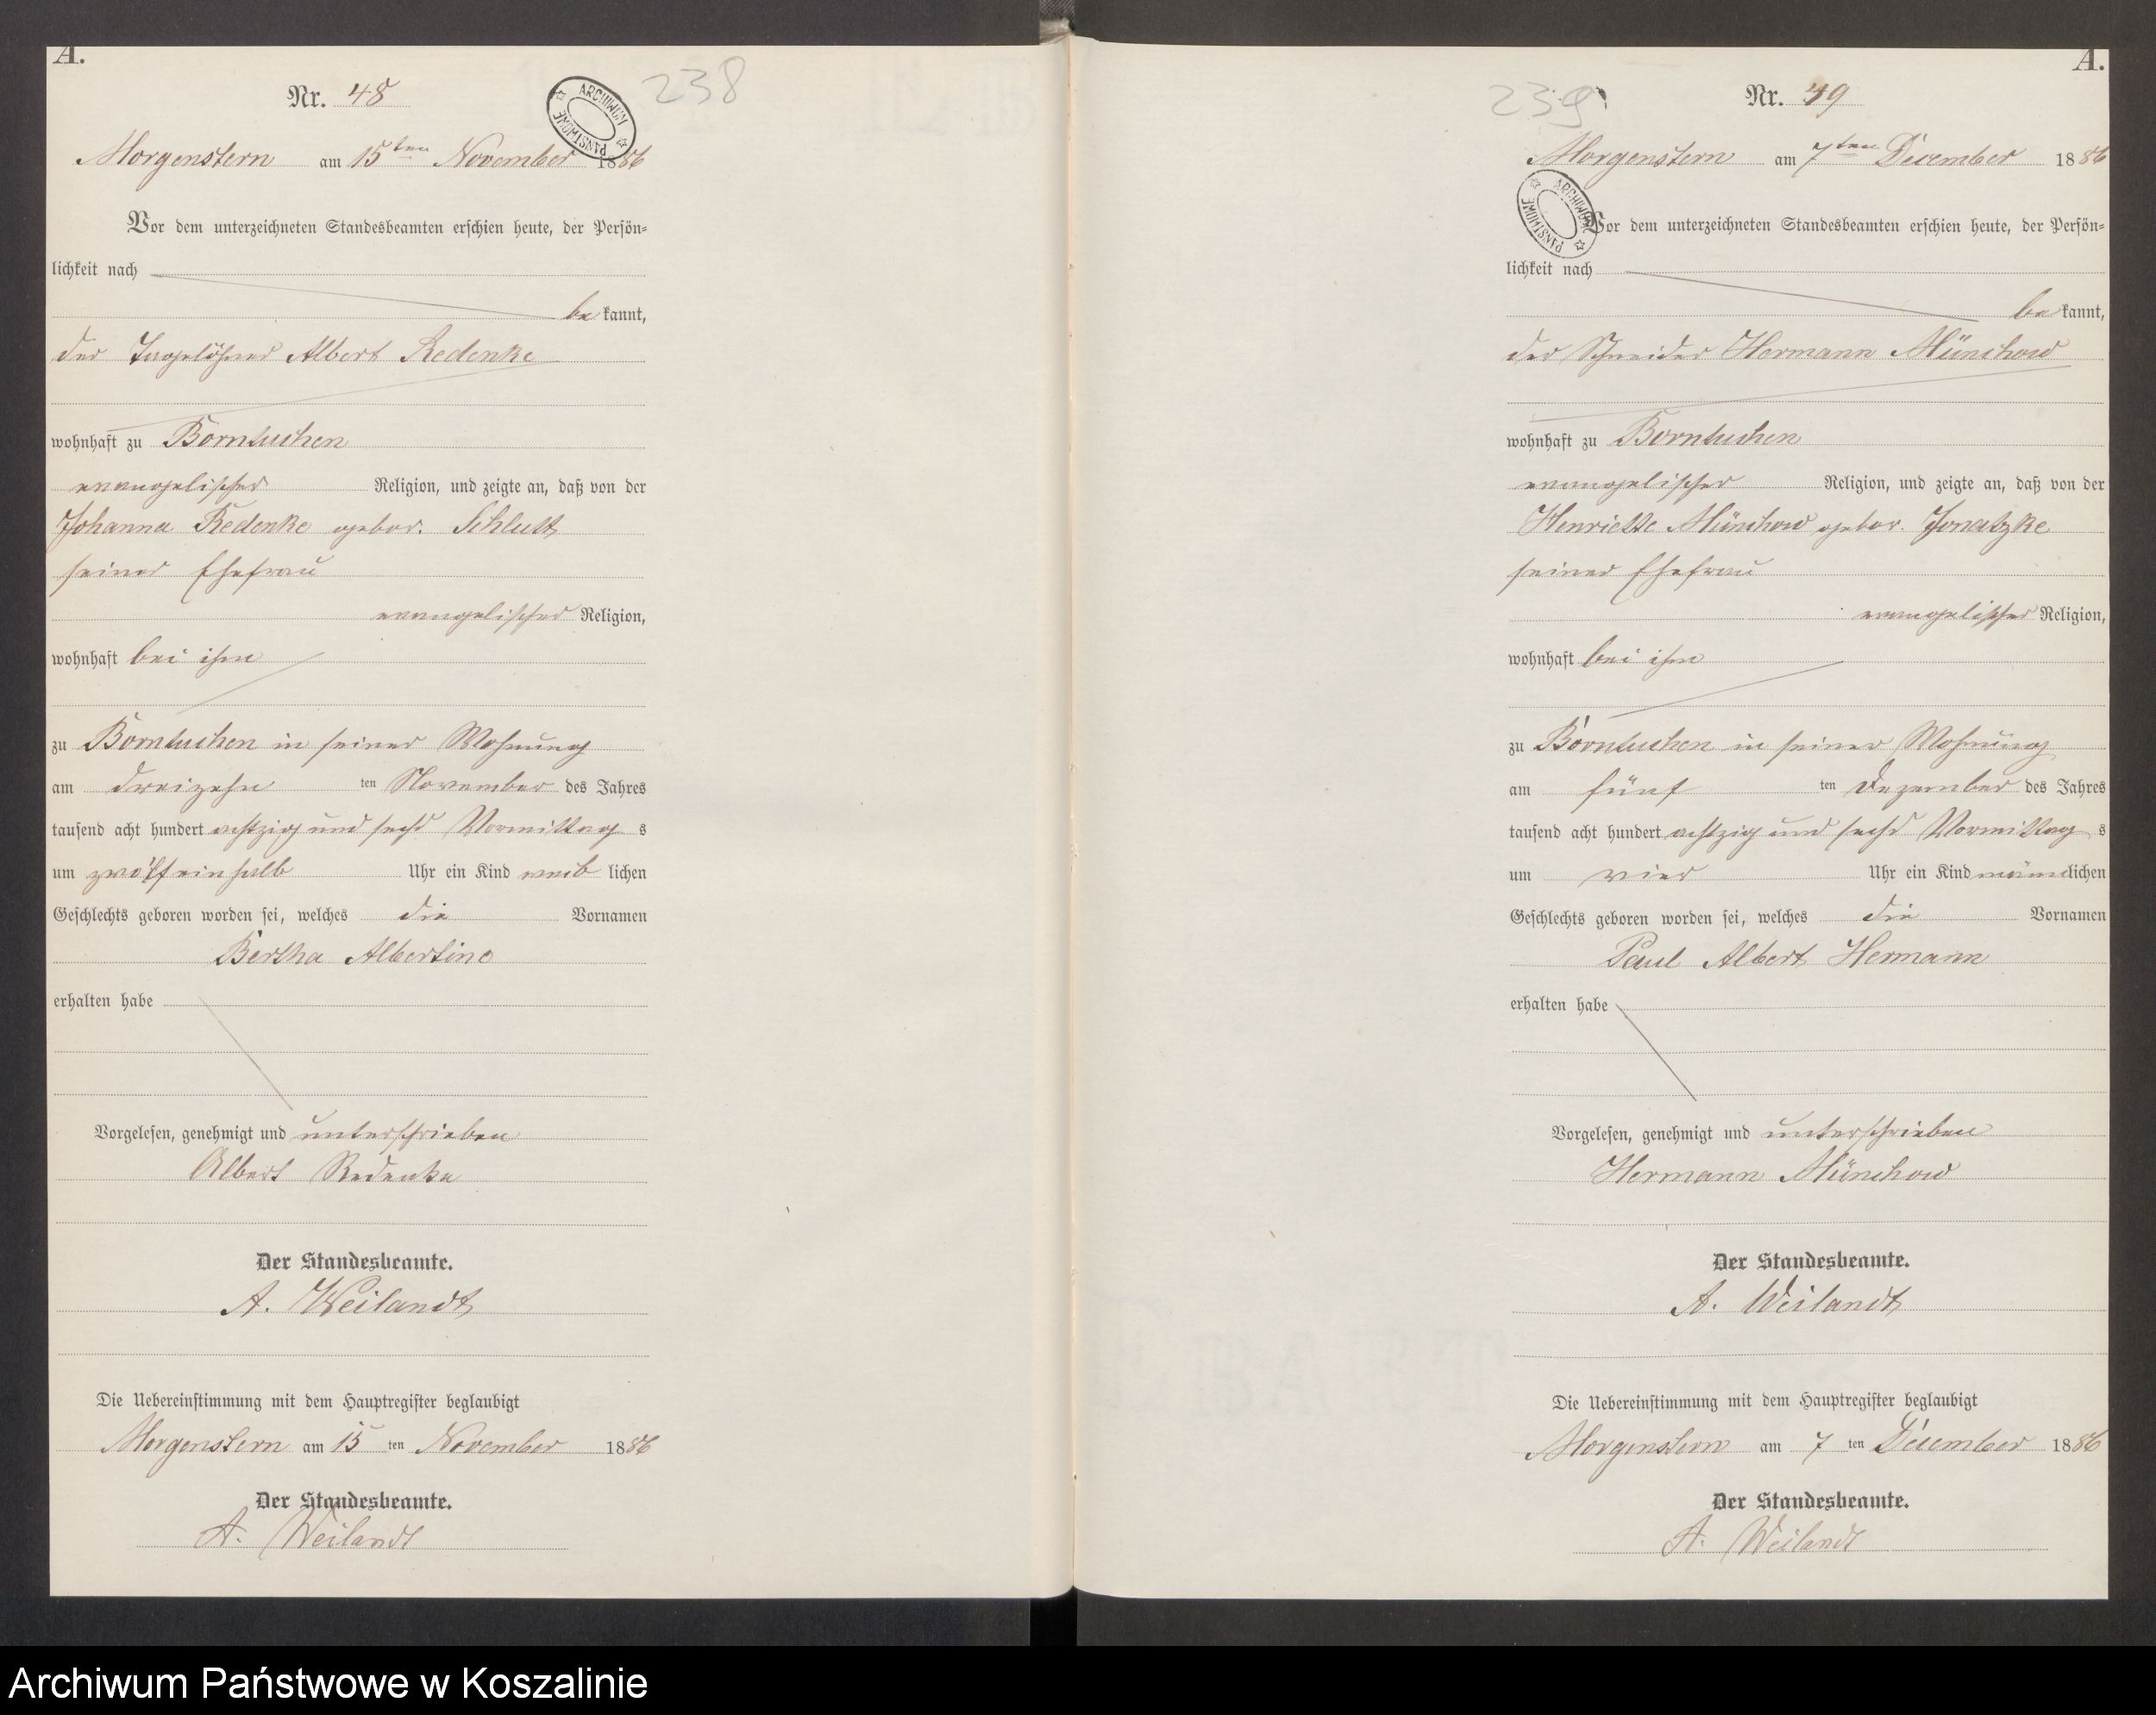 A.
Nr. 48
238
ARCHIWUM PAŃSTWOWE
Morgenstern am 15ten November 1886
Vor dem unterzeichneten Standesbeamten erschien heute, der Persön=
lichkeit nach
bekannt,
der Tagelöhner Albert Redenke
wohnhaft zu Borntuchen
evangelischer Religion, und zeigte an, daß von der
Johanna Redenke gebor. Schlutt
seiner Ehefrau
evangelischer Religion,
wohnhaft bei ihm
zu Borntuchen in seiner Wohnung
am dreizehnten November des Jahres
tausend acht hundert achtzig und sechs Vormittags
um zwölfeinhalb Uhr ein Kind weiblichen
Geschlechts geboren worden sei, welches die Vornamen
Bertha Albertine
erhalten habe
Vorgelesen, genehmigt und unterschrieben
Albert Redenke
Der Standesbeamte.
A. Weilandt
Die Uebereinstimmung mit dem Hauptregister beglaubigt
Morgenstern am 15ten November 1886
Der Standesbeamte.
A. Weilandt
A.
239
Nr. 49
Morgenstern am 7ten December 1886
ARCHIWUM PAŃSTWOWE
Vor dem unterzeichneten Standesbeamten erschien heute, der Persön=
lichkeit nach
bekannt,
der Schneider Hermann Münchow
wohnhaft zu Borntuchen
evangelischer Religion, und zeigte an, daß von der
Henriette Münchow gebor. Jonatzke
seiner Ehefrau
evangelischer Religion,
wohnhaft bei ihm
zu Borntuchen in seiner Wohnung
am fünften Dezember des Jahres
tausend acht hundert achtzig und sechs Vormittags
um vier Uhr ein Kind männlichen
Geschlechts geboren worden sei, welches die Vornamen
Paul Albert Hermann
erhalten habe
Vorgelesen, genehmigt und unterschrieben
Hermann Münchow
Der Standesbeamte.
A. Weilandt
Die Uebereinstimmung mit dem Hauptregister beglaubigt
Morgenstern am 7ten December 1886
Der Standesbeamte.
A. Weilandt
Archiwum Państwowe w Koszalinie